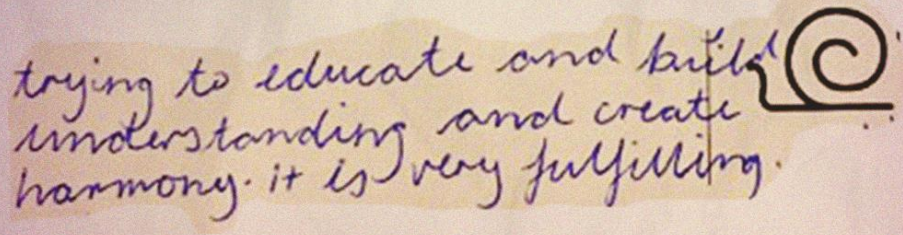 trying to educate and build
understanding and create
harmony. it is very fulfilling.